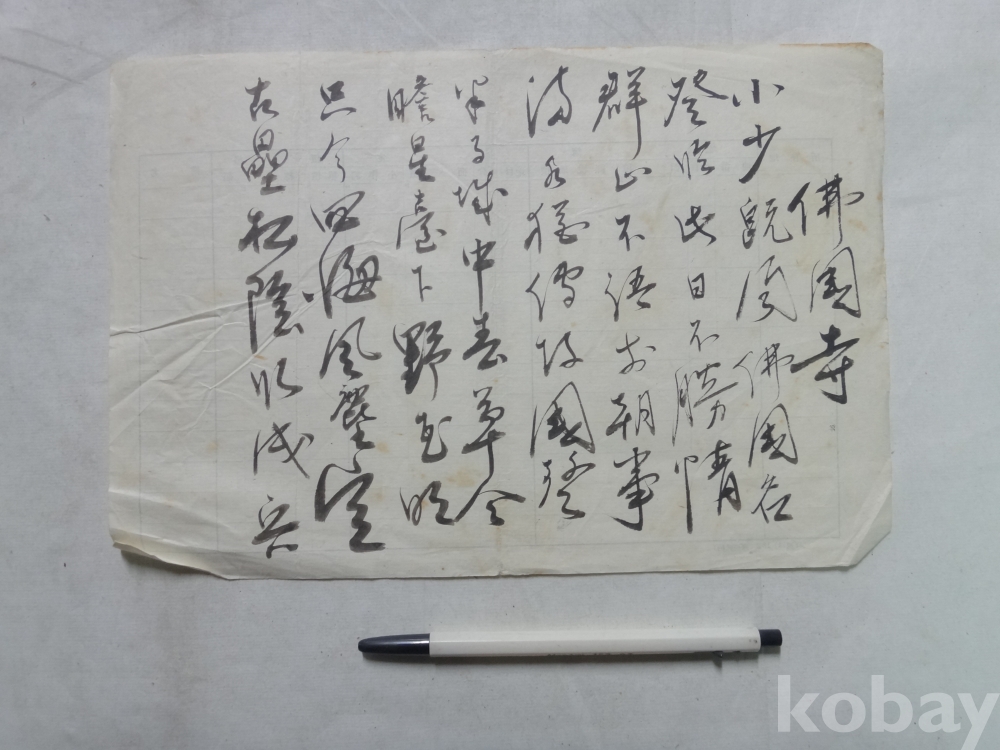 佛國寺
小少飽聞佛國名
登臨此日不勝情
群山不語前朝事
流水猶傳故國聲
半月城中春草合
瞻星臺下野花明
只今四海風塵定
古壘松陰臥戍兵
kobay